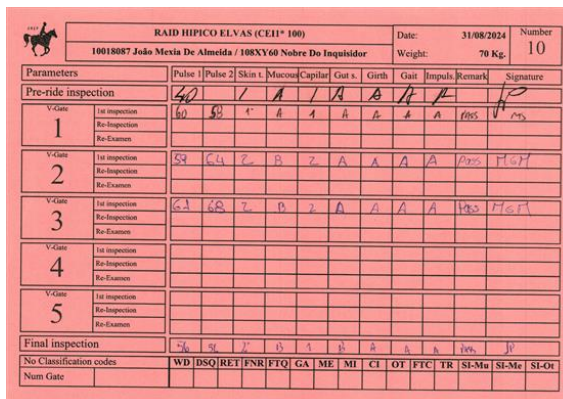 RAID HIPICO ELVAS (CEI1* 100) Date: 31/08/2024 Number
10018087 João Mexia De Almeida / 108XY60 Nobre Do Inquisidor Weight: 70 Kg. 10
Parameters Pulse 1 Pulse 2 Skin t. Mucous Capilar Gut s. Girth Gait Impuls. Remark Signature
Pre-ride inspection 40 1 A 1 A A A A
V-Gate 1 1st inspection 60 58 1 A 1 A A A A PASS MS
Re-Inspection
Re-Examen
V-Gate 2 1st inspection 59 64 2 B 2 A A A A Pass MGM
Re-Inspection
Re-Examen
V-Gate 3 1st inspection 61 68 2 B 2 A A A A PASS MGM
Re-Inspection
Re-Examen
V-Gate 4 1st inspection
Re-Inspection
Re-Examen
V-Gate 5 1st inspection
Re-Inspection
Re-Examen
Final inspection 56 B 1 A A A
No Classification codes WD DSQ RET FNR FTQ GA ME MI CI OT FTC TR SI-Mu SI-Me SI-Ot
Num Gate